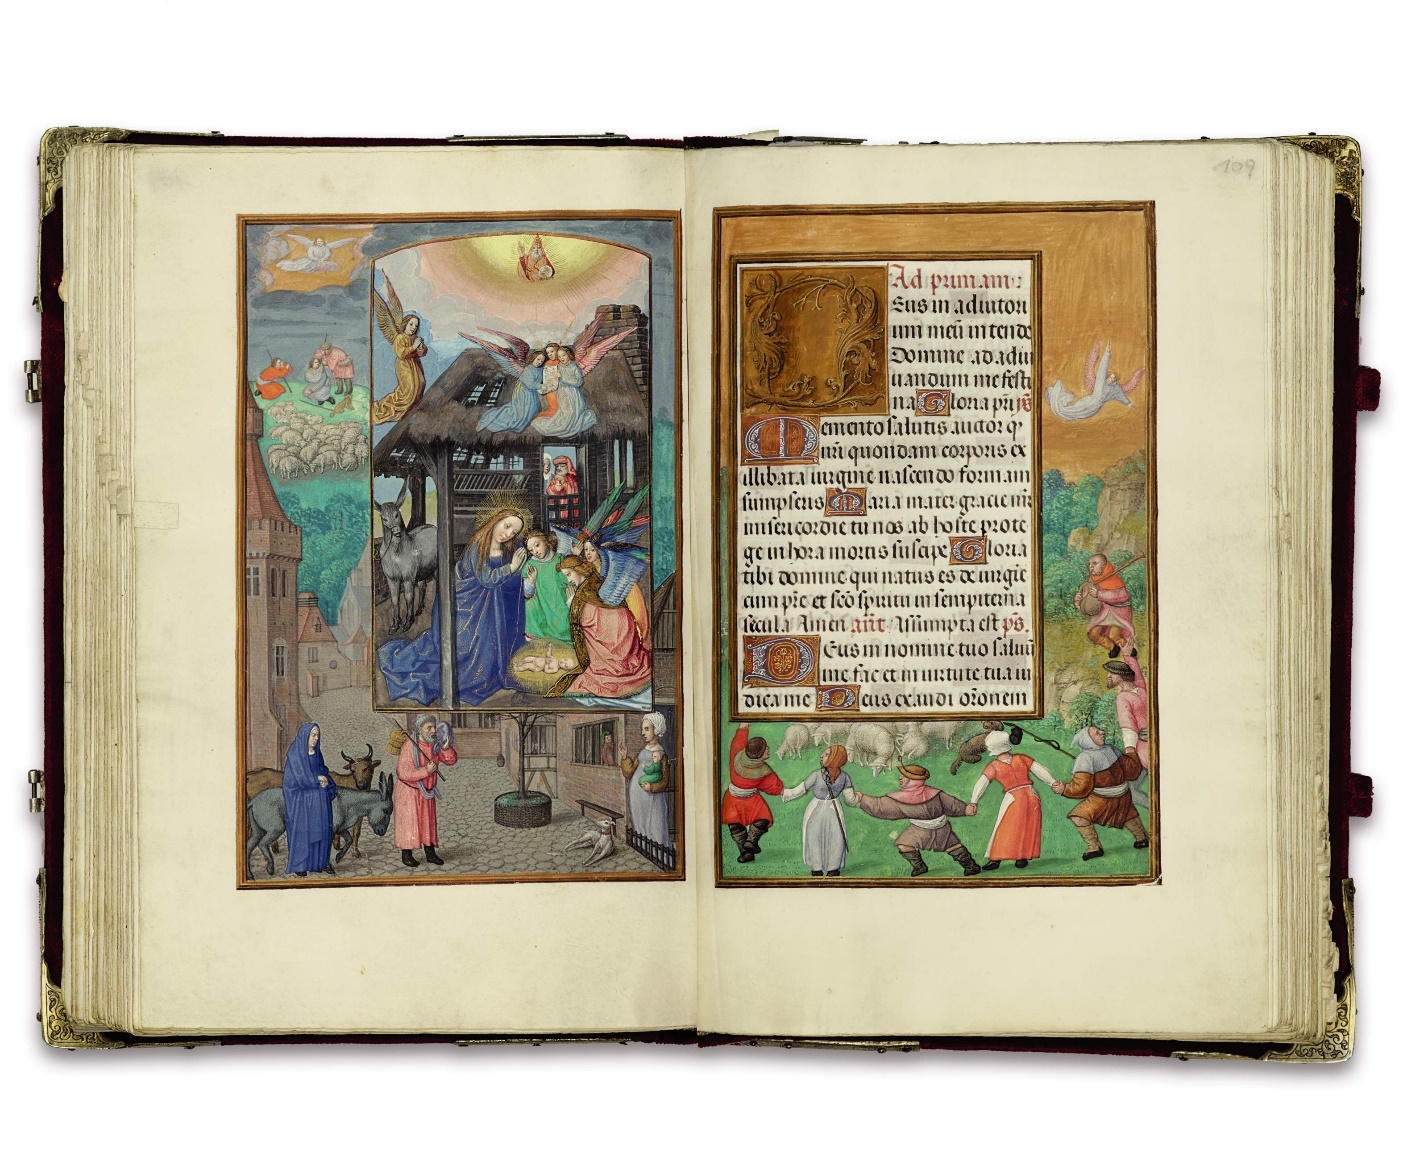 109
Ad primam:
Eus in adiutori
um meū intende
Domine ad adiu
uandum me festi
na Gloria pr̄i ps
Memento salutis auctor qͣ
nr̄i quondam corporis ex
illibata uirgine nascendo formam
sumpseris Maria mater gracie mr̄
misericordie tu nos ab hoste prote
ge in hora mortis suscipe Gloria
tibi domine qui natus es de uirgīe
cum pr̄e et sc̄o spiritu in sempiterna
secula Amen an̄t Assumpta est ps.
Deus in nomine tuo saluū
me fac et in uirtute tua iu
dica me Deus exaudi or̄onem